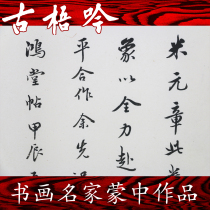 古梧吟
米元章此
象以全力赴
平合作余先
鸿堂帖甲辰
书画名家蒙中作品